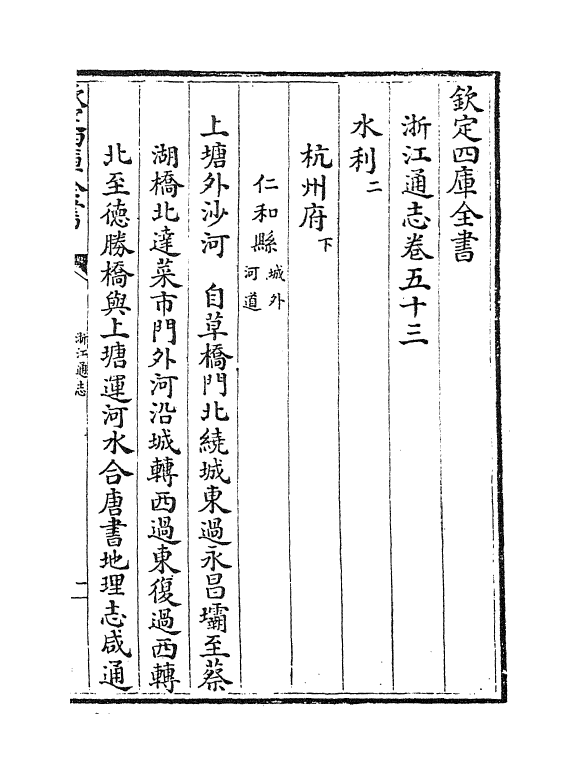 欽定四庫全書
浙江通志卷五十三
水利二
杭州府下
仁和縣城外河道
上塘外沙河 自草橋門北繞城東過永昌壩至蔡
湖橋北達菜市門外河沿城轉西過東復過西轉
北至德勝橋與上塘運河水合唐書地理志咸通
欽定四庫全書
浙江通志
二